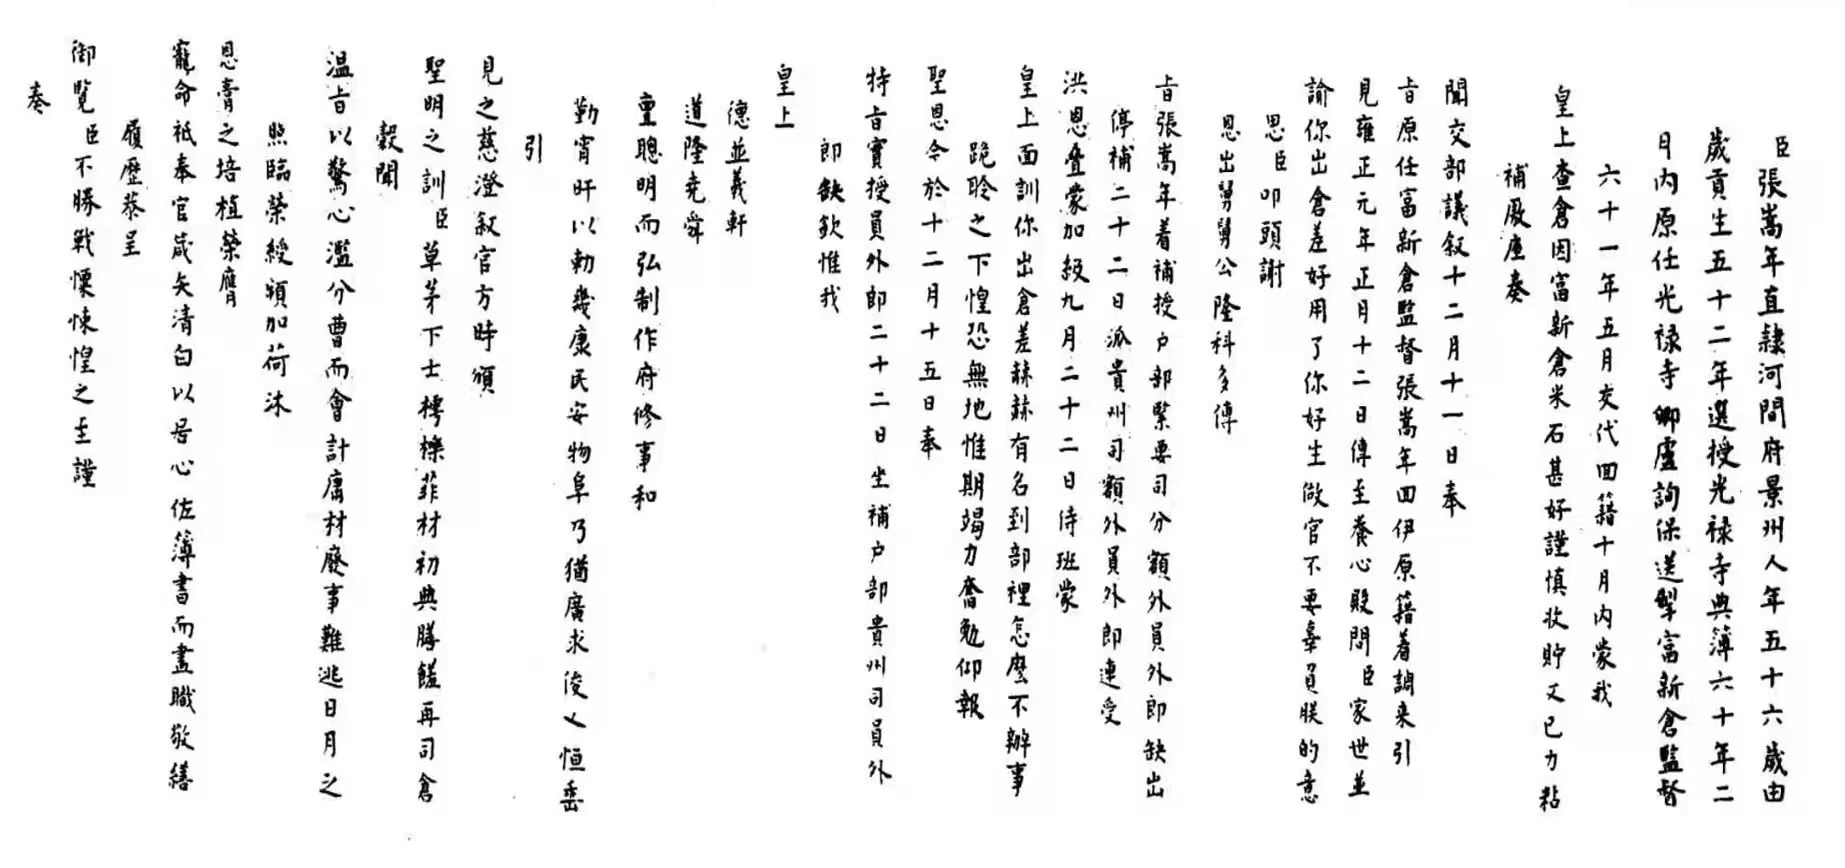 臣張嵩年直隸河間府景州人年五十六歲由
歲貢生五十二年選授光祿寺典簿六十年二
月內原任光祿寺卿盧詢保送掣富新倉監督
六十一年五月交代回籍十月內蒙我
皇上查倉因富新倉米石甚好謹慎收貯又已力粘
補廒座奏
聞交部議敘十二月十一日奉
旨原任富新倉監督張嵩年回伊原籍着調来引
見雍正元年正月十二日傳至養心殿問臣家世並
諭你出倉差好用了你好生做官不要辜負朕的意
思臣叩頭謝
恩出舅舅公隆科多傳
旨張嵩年着補授户部緊要司分額外員外郎缺出
停補二十二日派貴州司額外員外郎連受
洪恩叠蒙加級九月二十二日侍班蒙
皇上面訓你出倉差赫赫有名到部裡怎麽不辦事
跪聆之下惶恐無地惟期竭力奮勉仰報
聖恩今於十二月十五日奉
特旨實授員外郎二十二日坐補户部貴州司員外
郎缺欽惟我
皇上
德並羲軒
道隆堯舜
亶聰明而弘制作府修事和
勤宵旰以勅幾康民安物阜乃猶廣求俊乂恒垂
引
見之慈澄叙官方時頒
聖明之訓臣草茅下士樗櫟菲材初典膳饈再司倉
穀聞
温旨以驚心濫分曹而會計庸材廢事難逃日月之
照臨榮綬頻加荷沐
恩膏之培植榮膺
寵命祗奉官箴矢清白以居心佐簿書而盡職敬繕
履歷恭呈
御覽臣不勝戰慄悚惶之至謹
奏